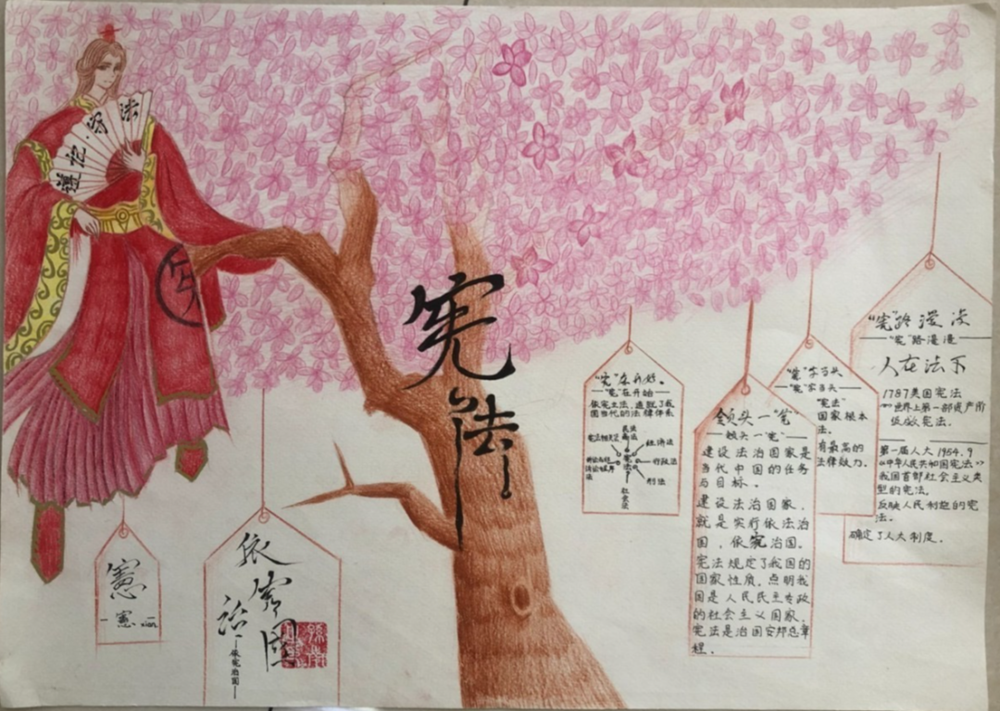 遵宪守法
宪
宪法
憲
-憲- xian
依宪治国
—依宪治国—
“宪”在开始.
—“宪”在开始—
依宪立法,造就了我
国当代的法律体系
民法
商法
经济法
行政法
刑法
社会法
宪法
领头一“宪”
—领头一“宪”—
建设法治国家是
当代中国的任务
与目标。
建设法治国家,
就是实行依法治
国,依宪治国。
宪法规定了我国的
国家性质,点明我
国是人民民主专政
的社会主义国家.
宪法是治国安邦总章
程.
“宪”字当头
—“宪”字当头—
“宪法”
国家根本
法。
有最高的
法律效力.
“宪”路漫漫
—“宪”路漫漫—
人在法下
1787美国宪法
世界上第一部资产阶
级成文宪法.
第一届人大1954.9
《中华人民共和国宪法》
我国首部社会主义类
型的宪法,
反映人民利益的宪
法。
确定了人大制度.